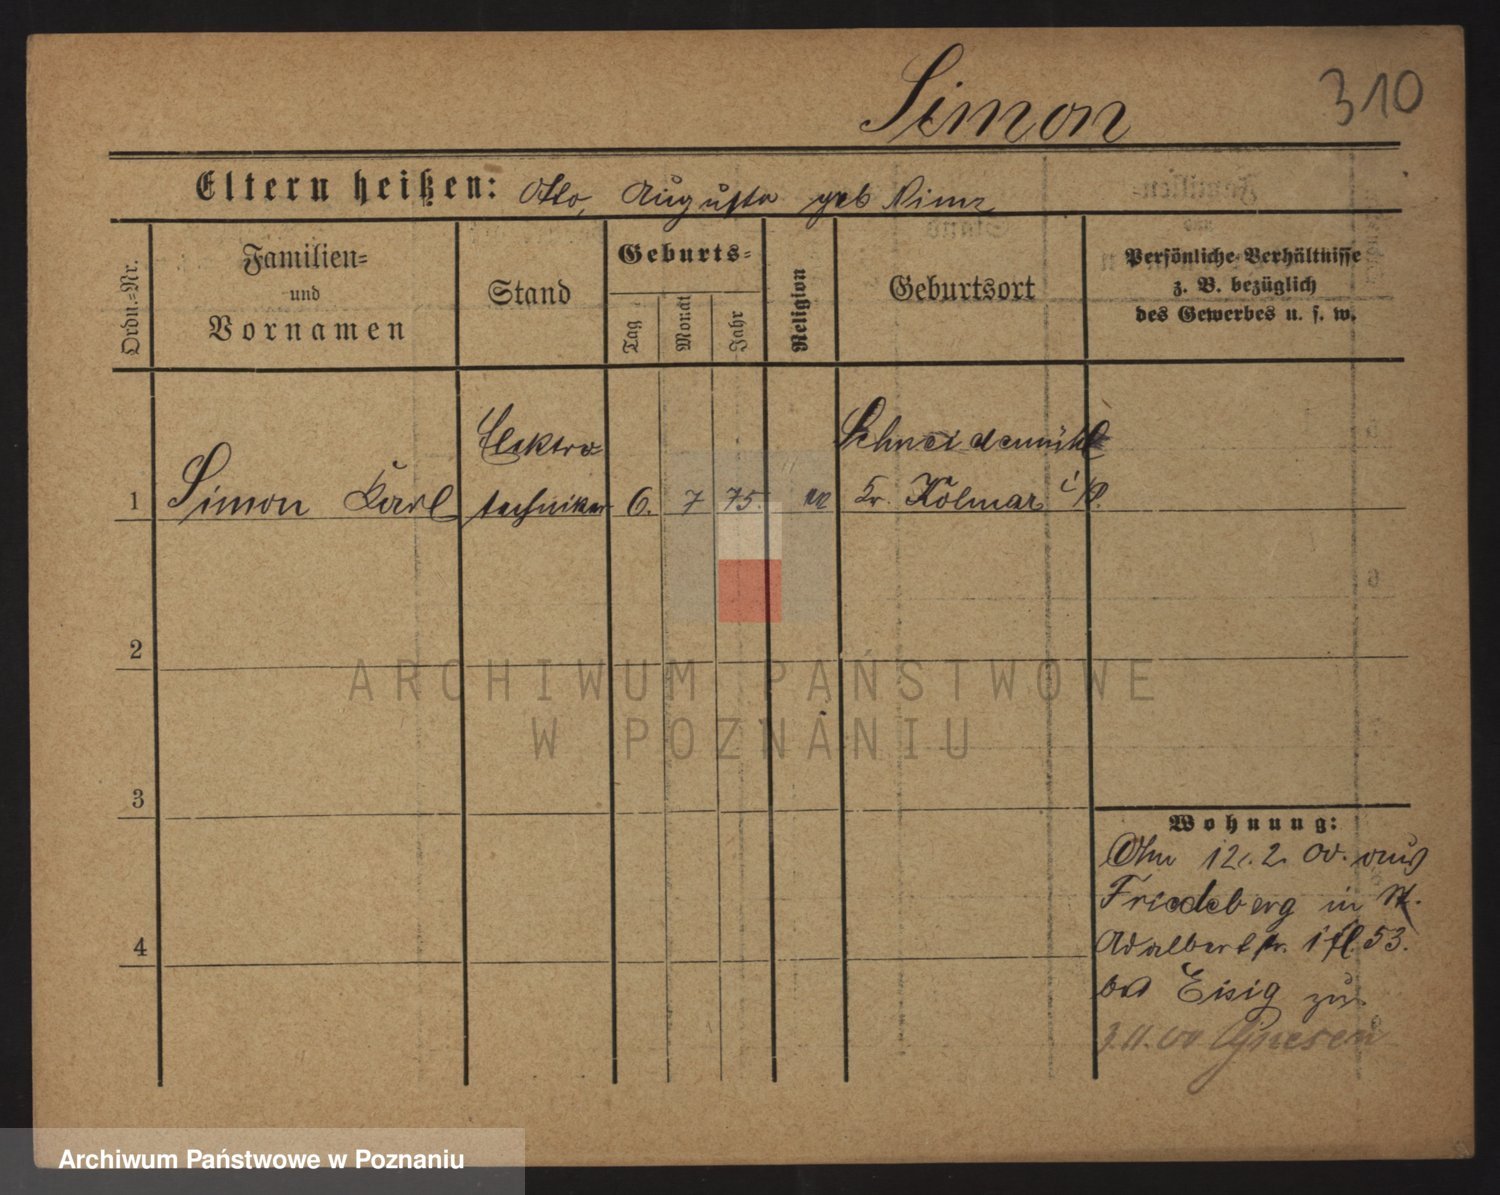 Simon 310
Eltern heißen: Otto, Augusta geb
Ordn.=Nr.
Familien=
und
Vornamen
Stand
Geburts=
Tag
Monat
Jahr
Religion
Geburtsort
Persönliche Verhältnisse
z. B. bezüglich
des Gewerbes u. s. w.
Elektro Schneidemühl
1 Simon Karl techniker 6. 7 75. Kr. Kolmar i/P.
2
3
4
Wohnung:
12. 2. 00. aus
Friedeberg in
Adalbertstr. 53.
bei Eisig zur
3.11.00 Gnesen
ARCHIWUM PAŃSTWOWE
W POZNANIU
Archiwum Państwowe w Poznaniu